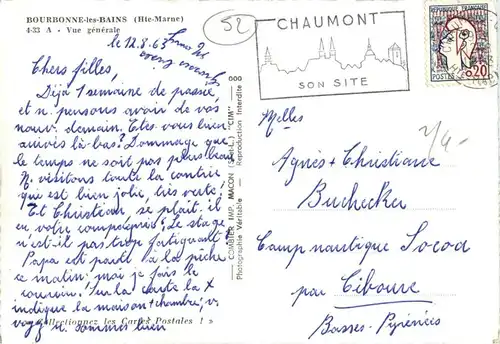 BOURBONNE-les-BAINS (Hte-Marne)
4-33 A - Vue générale
52
CHAUMONT
SON SITE
POSTES
0,20
le 12.8.63
Chers filles,
Déjà 1 semaine de passée
et n. pensons avoir de vos
nouv. demain. Etes vous bien
arrivés là bas? Dommage que
le temps ne soit pas plus beau
N. visitons toute la contrée
qui est bien jolie, très verte!
Et Christian, se plaît-il
en votre compagnie? Le stage
n'est-il pas trop fatiguant?
Papa est parti à la pêche
ce matin; moi je fais le
courrier. Sur la carte la X
indique la maison + chambre; v.
voyez n. sommes bien
« Collectionnez les Cartes Postales ! »
COMBIER IMP. MACON (S.-et-L.) "CIM"
Photographie Véritable - Reproduction Interdite
Melles
Agnès + Christiane
Buchecker
Camp nautique Socoa
par Ciboure
Basses-Pyrénées